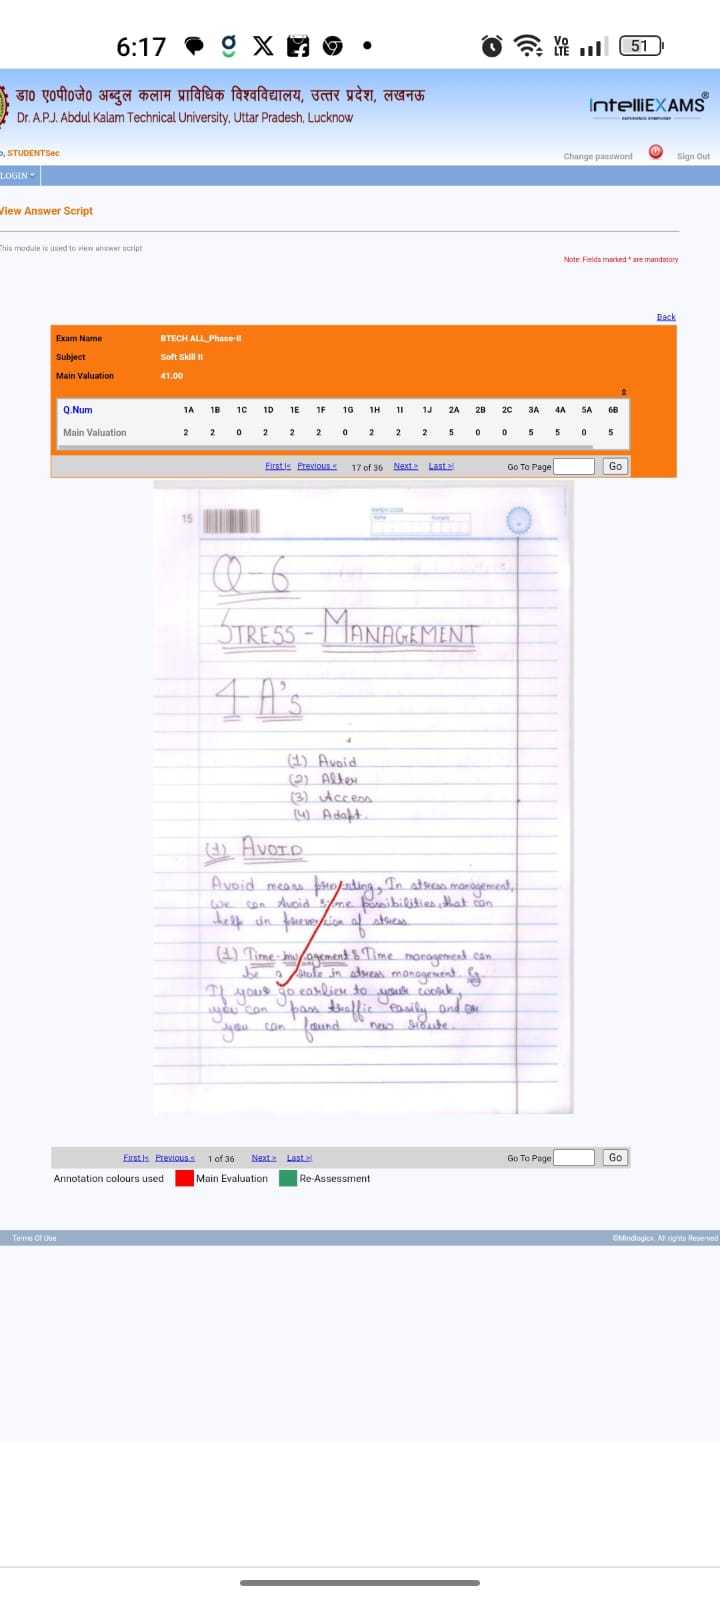 6:17
Vo LTE
51
डा0 ए0पी0जे0 अब्दुल कलाम प्राविधिक विश्वविद्यालय, उत्तर प्रदेश, लखनऊ
Dr. A.P.J. Abdul Kalam Technical University, Uttar Pradesh, Lucknow
IntelliEXAMS®
o, STUDENTSec
Change password
Sign Out
LOGIN
View Answer Script
This module is used to view answer script
Note: Fields marked * are mandatory
Back
Exam Name BTECH ALL_Phase-II
Subject Soft Skill II
Main Valuation 41.00
Q.Num 1A 1B 1C 1D 1E 1F 1G 1H 1I 1J 2A 2B 2C 3A 4A 5A 6B
Main Valuation 2 2 0 2 2 2 0 2 2 2 5 0 0 5 5 0 5
First|< Previous < 17 of 36 Next > Last >| Go To Page Go
15
PAPER CODE
Q-6
STRESS - MANAGEMENT
4 A's
(1) Avoid
(2) Alter
(3) Access
(4) Adapt.
(1) AVOID
Avoid means preventing, In stress management,
we can Avoid some possibilities, that can
help in prevention of stress
(1) Time-management : Time management can
be a role in stress management. Eg.
If your go earlier to your work,
you can pass traffic easily and or
you can found new route.
First|< Previous < 1 of 36 Next > Last >| Go To Page Go
Annotation colours used Main Evaluation Re-Assessment
Terms Of Use
©Mindlogicx. All rights Reserved